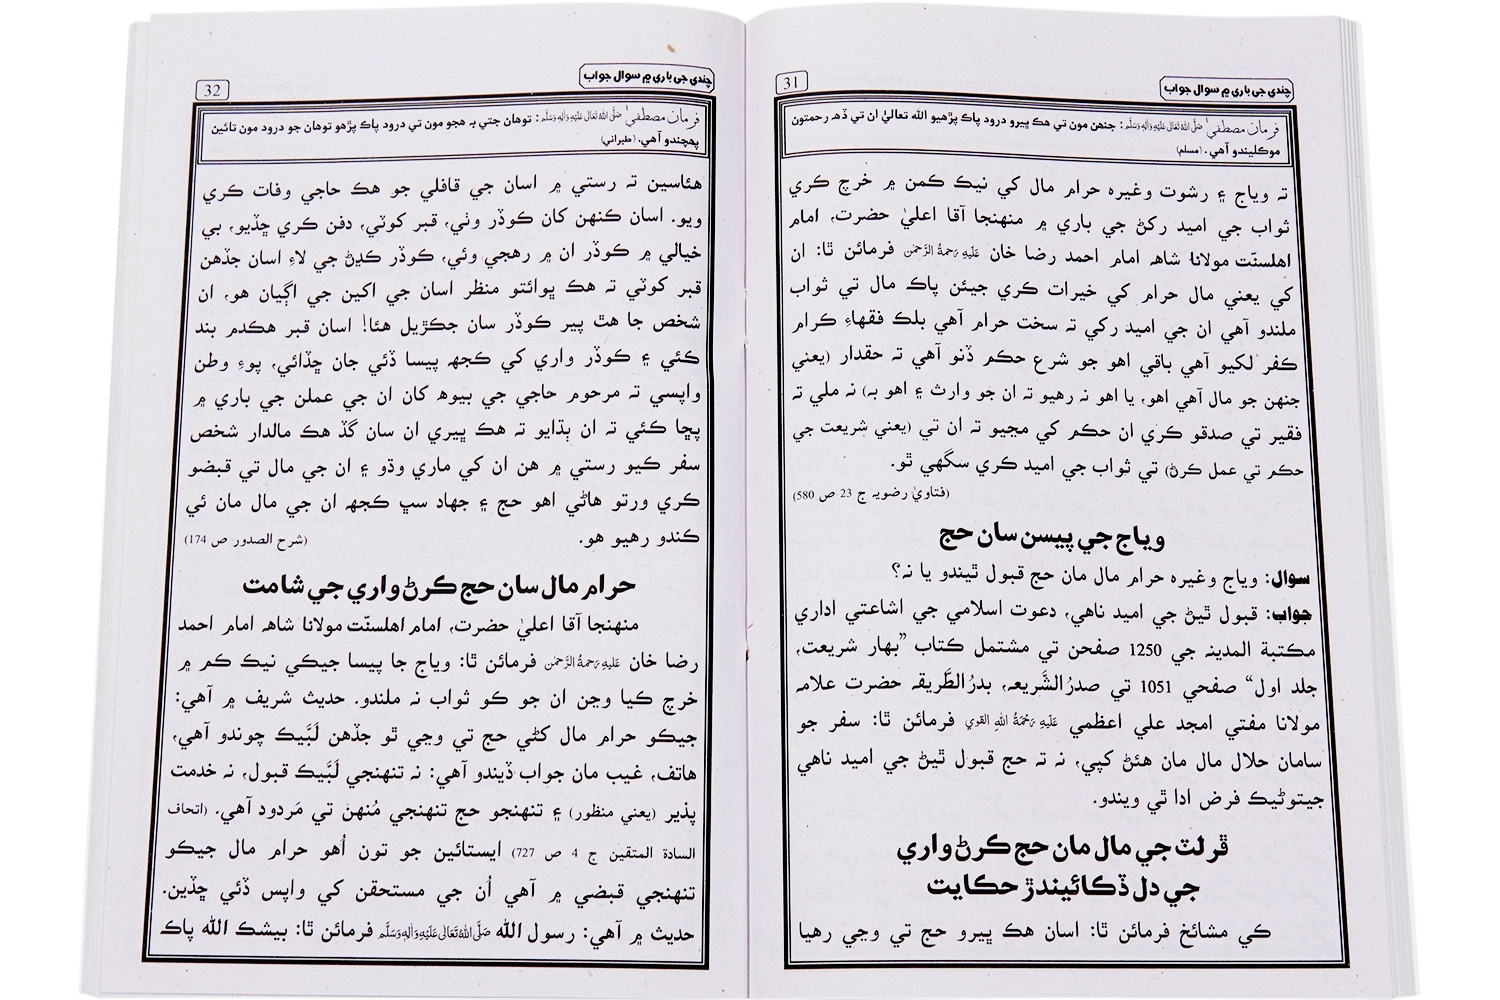 چندي جي باري ۾ سوال جواب
31
فرمان مصطفيٰ صَلَّی اللہُ تَعَالٰی عَلَیْہِ وَاٰلِہٖ وَسَلَّم: جنهن مون تي هڪ ڀيرو درود پاڪ پڙهيو الله تعاليٰ ان تي ڏهه رحمتون
موڪليندو آهي. (مسلم)
تہ وياج ۽ رشوت وغيره حرام مال کي نيڪ ڪمن ۾ خرچ ڪري
ثواب جي اميد رکڻ جي باري ۾ منهنجا آقا اعليٰ حضرت، امام
اهلسنّت مولانا شاهہ امام احمد رضا خان عَلَيہِ رَحمَۃُ الرَّحمٰن فرمائن ٿا: ان
کي يعني مال حرام کي خيرات ڪري جيئن پاڪ مال تي ثواب
ملندو آهي ان جي اميد رکي تہ سخت حرام آهي بلڪ فقهاءِ ڪرام
ڪفر لکيو آهي باقي اهو جو شرع حڪم ڏنو آهي تہ حقدار (يعني
جنهن جو مال آهي اهو، يا اهو نہ رهيو تہ ان جو وارث ۽ اهو بہ) نہ ملي تہ
فقير تي صدقو ڪري ان حڪم کي مڃيو تہ ان تي (يعني شريعت جي
حڪم تي عمل ڪرڻ) تي ثواب جي اميد ڪري سگهي ٿو.
(فتاويٰ رضويہ ج 23 ص 580)
وياج جي پيسن سان حج
سوال: وياج وغيره حرام مال مان حج قبول ٿيندو يا نہ؟
جواب: قبول ٿيڻ جي اميد ناهي، دعوت اسلامي جي اشاعتي اداري
مڪتبة المدينہ جي 1250 صفحن تي مشتمل ڪتاب ”بهار شريعت،
جلد اول“ صفحي 1051 تي صدرُالشَّريعہ، بدرُالطَّريقہ حضرت علامہ
مولانا مفتي امجد علي اعظمي عَلَيہِ رَحْمَۃُ اللہِ القَوي فرمائن ٿا: سفر جو
سامان حلال مال مان هئڻ کپي، نہ تہ حج قبول ٿيڻ جي اميد ناهي
جيتوڻيڪ فرض ادا ٿي ويندو.
ڦرلٽ جي مال مان حج ڪرڻ واري
جي دل ڏڪائيندڙ حڪايت
ڪي مشائخ فرمائن ٿا: اسان هڪ ڀيرو حج تي وڃي رهيا
چندي جي باري ۾ سوال جواب
32
فرمان مصطفيٰ صَلَّی اللہُ تَعَالٰی عَلَیْہِ وَاٰلِہٖ وَسَلَّم: توهان جتي بہ هجو مون تي درود پاڪ پڙهو توهان جو درود مون تائين
پهچندو آهي. (طبراني)
هئاسين تہ رستي ۾ اسان جي قافلي جو هڪ حاجي وفات ڪري
ويو. اسان ڪنهن کان ڪوڏر وٺي، قبر کوٽي، دفن ڪري ڇڏيو، بي
خيالي ۾ ڪوڏر ان ۾ رهجي وئي، ڪوڏر ڪڍڻ جي لاءِ اسان جڏهن
قبر کوٽي تہ هڪ ڀوائتو منظر اسان جي اکين جي اڳيان هو، ان
شخص جا هٿ پير ڪوڏر سان جڪڙيل هئا! اسان قبر هڪدم بند
ڪئي ۽ ڪوڏر واري کي ڪجهہ پيسا ڏئي جان ڇڏائي، پوءِ وطن
واپسي تہ مرحوم حاجي جي بيوهہ کان ان جي عملن جي باري ۾
پڇا ڪئي تہ ان ٻڌايو تہ هڪ ڀيري ان سان گڏ هڪ مالدار شخص
سفر ڪيو رستي ۾ هن ان کي ماري وڌو ۽ ان جي مال تي قبضو
ڪري ورتو هاڻي اهو حج ۽ جهاد سڀ ڪجهہ ان جي مال مان ئي
ڪندو رهيو هو.
(شرح الصدور ص 174)
حرام مال سان حج ڪرڻ واري جي شامت
منهنجا آقا اعليٰ حضرت، امام اهلسنّت مولانا شاهہ امام احمد
رضا خان عَلَيہِ رَحمَۃُ الرَّحمٰن فرمائن ٿا: وياج جا پيسا جيڪي نيڪ ڪم ۾
خرچ ڪيا وڃن ان جو ڪو ثواب نہ ملندو. حديث شريف ۾ آهي:
جيڪو حرام مال کڻي حج تي وڃي ٿو جڏهن لَبَّيڪ چوندو آهي،
هاتف، غيب مان جواب ڏيندو آهي: نہ تنهنجي لَبَّيڪ قبول، نہ خدمت
پذير (يعني منظور) ۽ تنهنجو حج تنهنجي مُنهن تي مَردود آهي. (اتحاف
السادة المتقين ج 4 ص 727) ايستائين جو تون اُهو حرام مال جيڪو
تنهنجي قبضي ۾ آهي اُن جي مستحقن کي واپس ڏئي ڇڏين.
حديث ۾ آهي: رسول الله صَلَّی اللہُ تَعَالٰی عَلَیْہِ وَاٰلِہٖ وَسَلَّم فرمائن ٿا: بيشڪ الله پاڪ